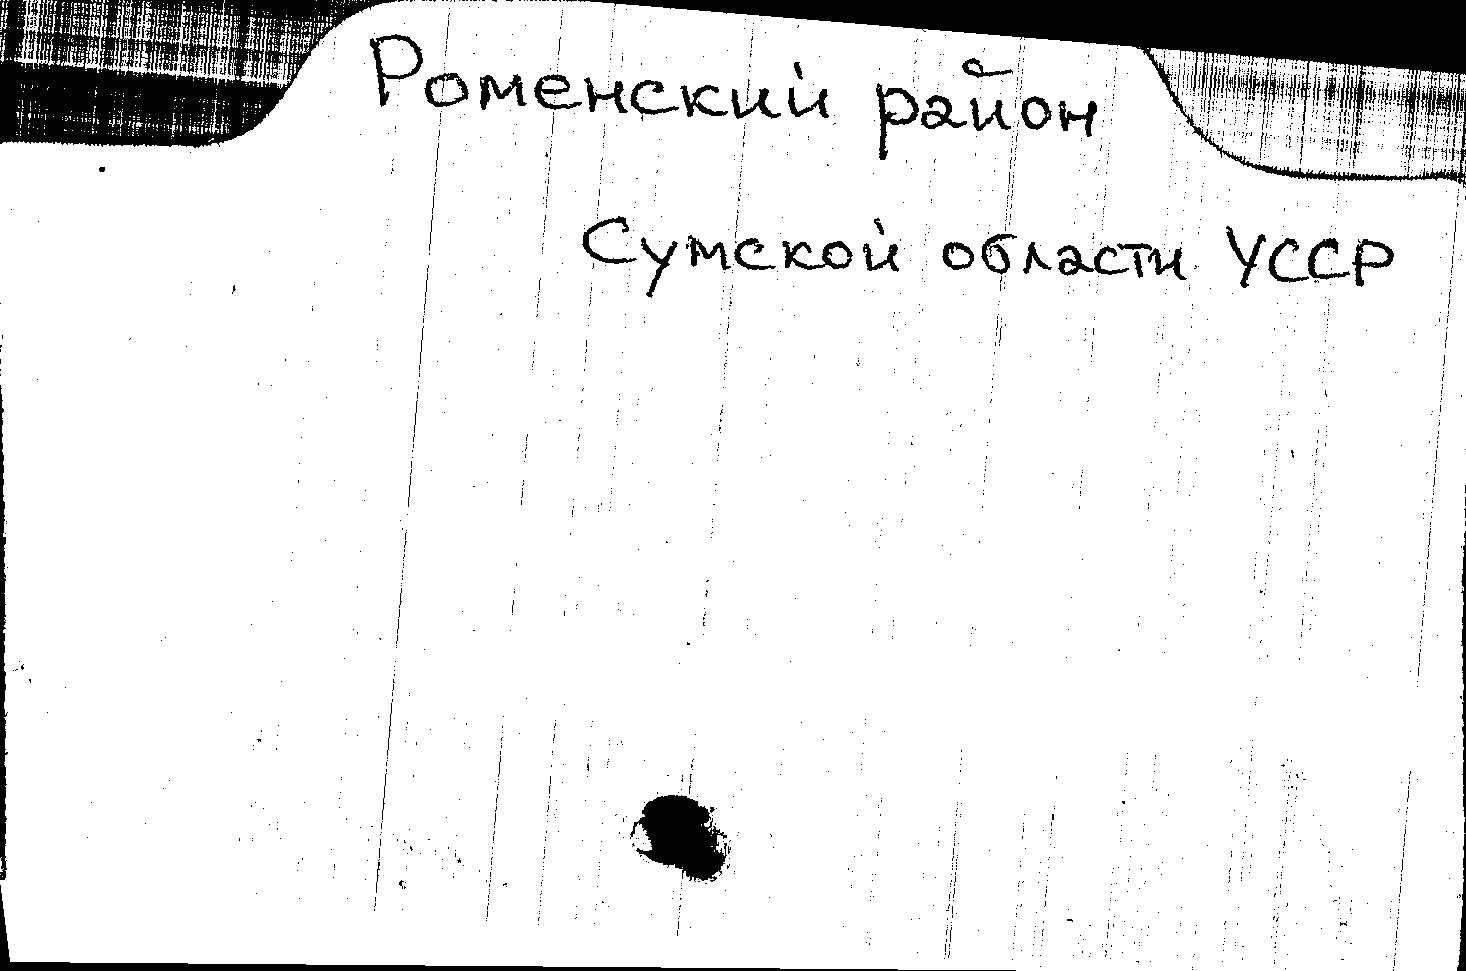 Роменский район
Сумской области УССР